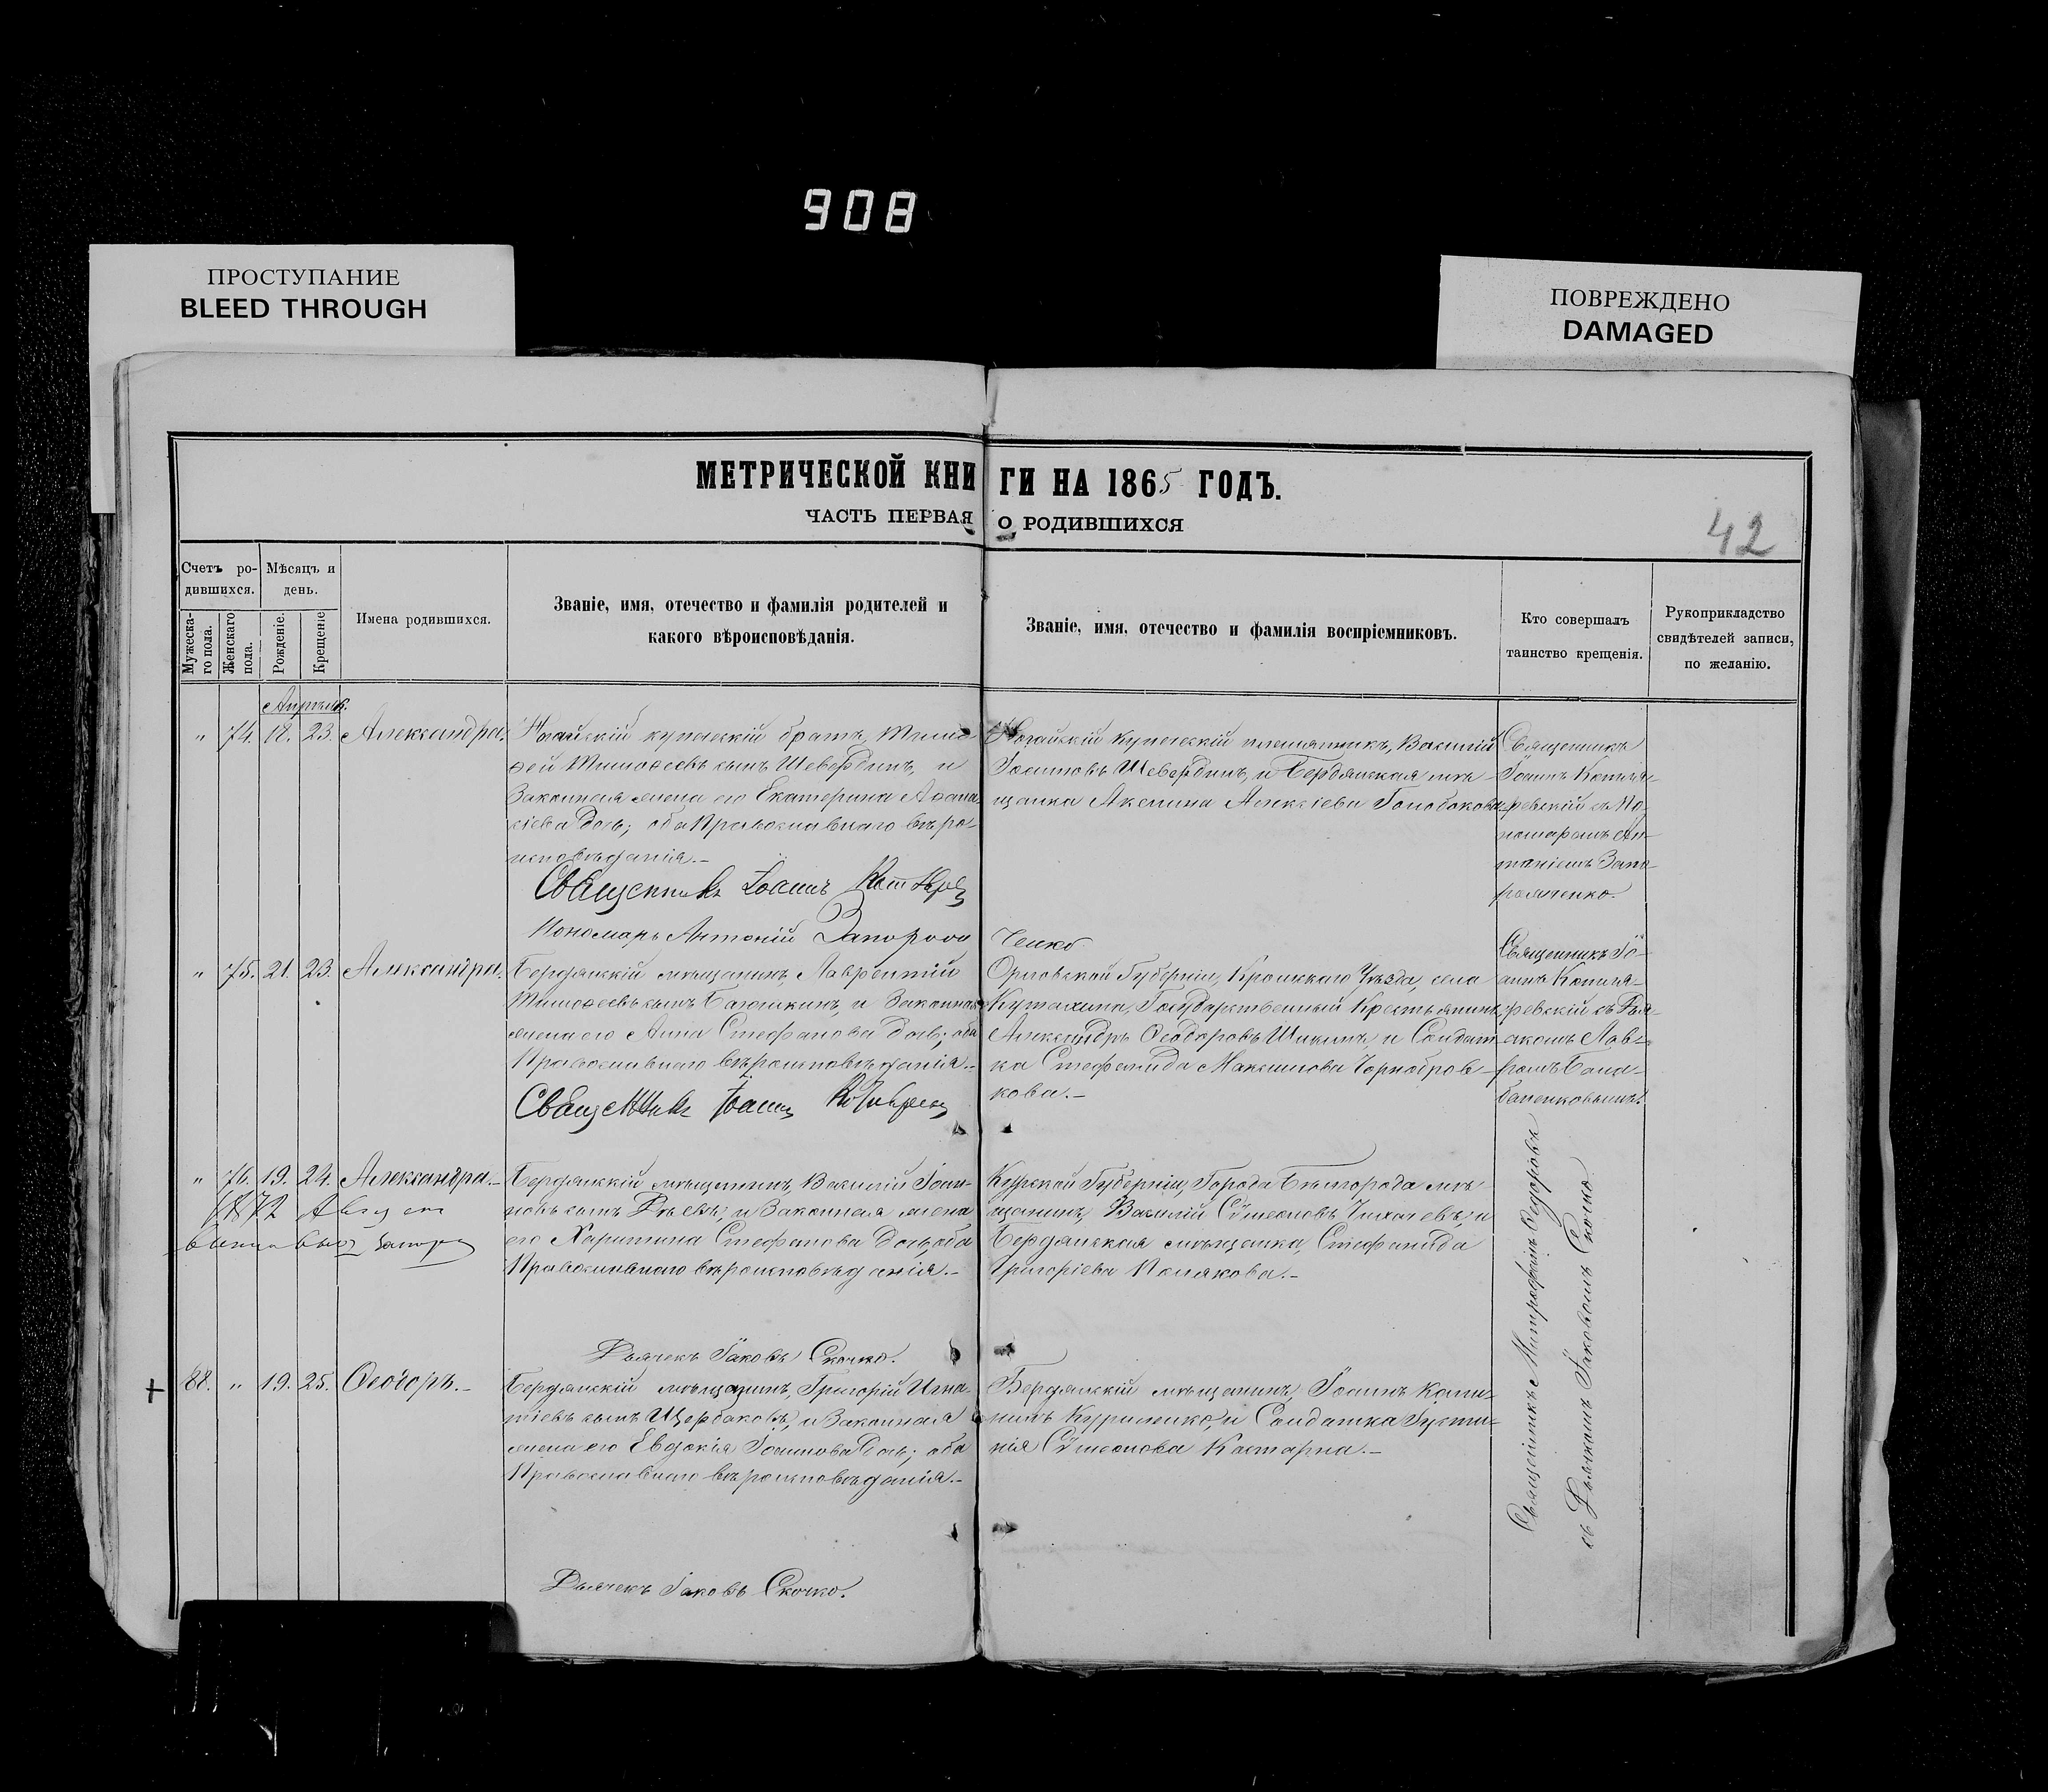 908
ПРОСТУПАНИЕ
BLEED THROUGH
ПОВРЕЖДЕНО
DAMAGED
МЕТРИЧЕСКОЙ КНИГИ НА 1865 ГОДЪ.
ЧАСТЬ ПЕРВАЯ О РОДИВШИХСЯ
42
Счетъ ро-
дившихся.
Мужеска-
го пола.
Женскаго
пола.
Мѣсяцъ и
день.
Рожденіе.
Крещеніе
Имена родившихся.
Званіе, имя, отечество и фамилія родителей и
какого вѣроисповѣданія.
Званіе, имя, отечество и фамилія воспріемниковъ.
Кто совершалъ
таинство крещенія.
Рукоприкладство
свидѣтелей записи,
по желанію.
Апрѣль.
" 74. 18. 23. Александра.
Ногайскій купеческій братъ, Тимо-
ѳей Тимоѳеевъ сынъ Шевердинъ, и
Законная жена его Екатерина Аѳана-
сіева дочь; оба Православнаго вѣро-
исповѣданія.-
Священникъ Іоаннъ
Пономарь Антоній Запорож
ченко
Ногайскій купеческій племянникъ, Василій
Іоанновъ Шевердинъ, и Бердянская мѣ-
щанка Акелина Алексіева Голобокова
Священникъ
Іоаннъ Котля-
ревскій съ По-
номаремъ Ан-
тоніемъ Запо-
рожченко.
" 75. 21. 23. Александра.
Бердянскій мѣщанинъ, Лаврентій
Тимоѳеевъ сынъ и Законная
жена его Анна Стефанова дочь; оба
Православнаго вѣроисповѣданія.-
Священникъ Іоаннъ
Орловской Губерніи, Кромскаго Уѣзда, села
Государственный Крестьянинъ,
Александръ Ѳеодоровъ Шикинъ, и Солдат-
ка Стефанида Максимова Чорнобров-
кова.-
Священникъ Іо-
аннъ Котля-
ревскій съ Дья-
комъ Лав-
ромъ Бала-
баненковымъ.
" 76. 19. 24. Александра.-
1872 Август
выпись
Бердянскій мѣщанинъ, Василій Іоан-
новъ сынъ и Законная жена
его Харитина Стефанова дочь, оба
Православнаго вѣроисповѣданія.-
Дьячекъ Іаковъ Скочко.
Курской Губерніи, Города Бѣлгорода мѣ-
щанинъ, Василій Сѵмеоновъ Лихачевъ, и
Бердянская мѣщанка, Стефанида
Григоріева Полякова.-
Священникъ Митрофанъ Ѳедоровъ
съ Дьячкомъ Іаковомъ Скочко.
88. " 19. 25. Ѳеодоръ.-
Бердянскій мѣщанинъ, Григорій Игна-
тіевъ сынъ Щербаковъ, и Законная
жена его Евдокія Іоаннова дочь; оба
Православнаго вѣроисповѣданія.-
Дьячекъ Іаковъ Скочко.
Бердянскій мѣщанинъ, Іоаннъ Кали-
нинъ Куриленко, и Солдатка Іусти-
нія Сѵмеонова Кастарна.-